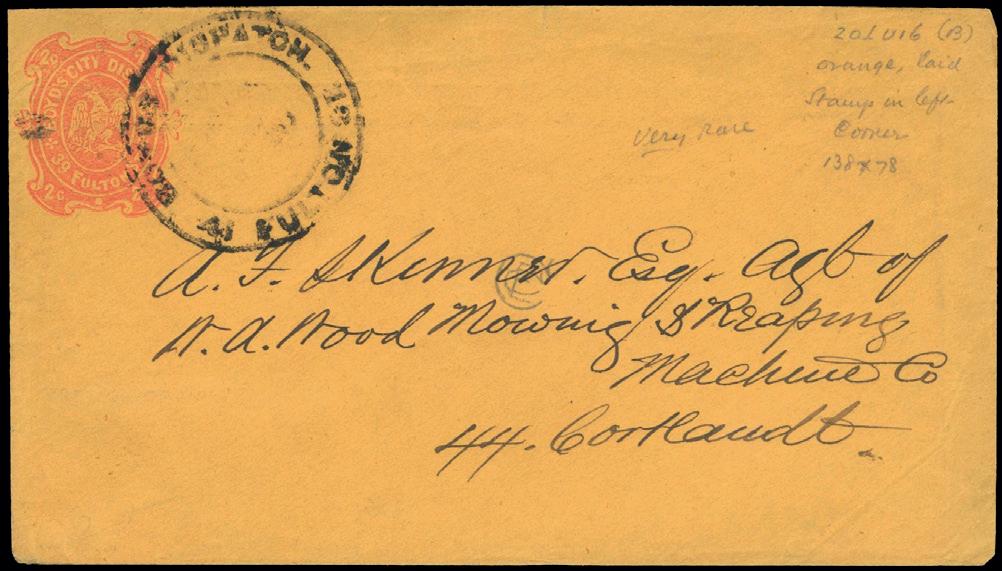 2c
BOYD'S CITY DIS
39 FULTO
2c
BOYD'S DISPATCH.
FULTON
20LU16 (B)
orange, laid
Stamp in left
Corner
138x78
very rare
A. F. Skinner. Esq. Agt of
W. A. Wood Mowing & Reaping
Machine Co
44. Cortlandt.